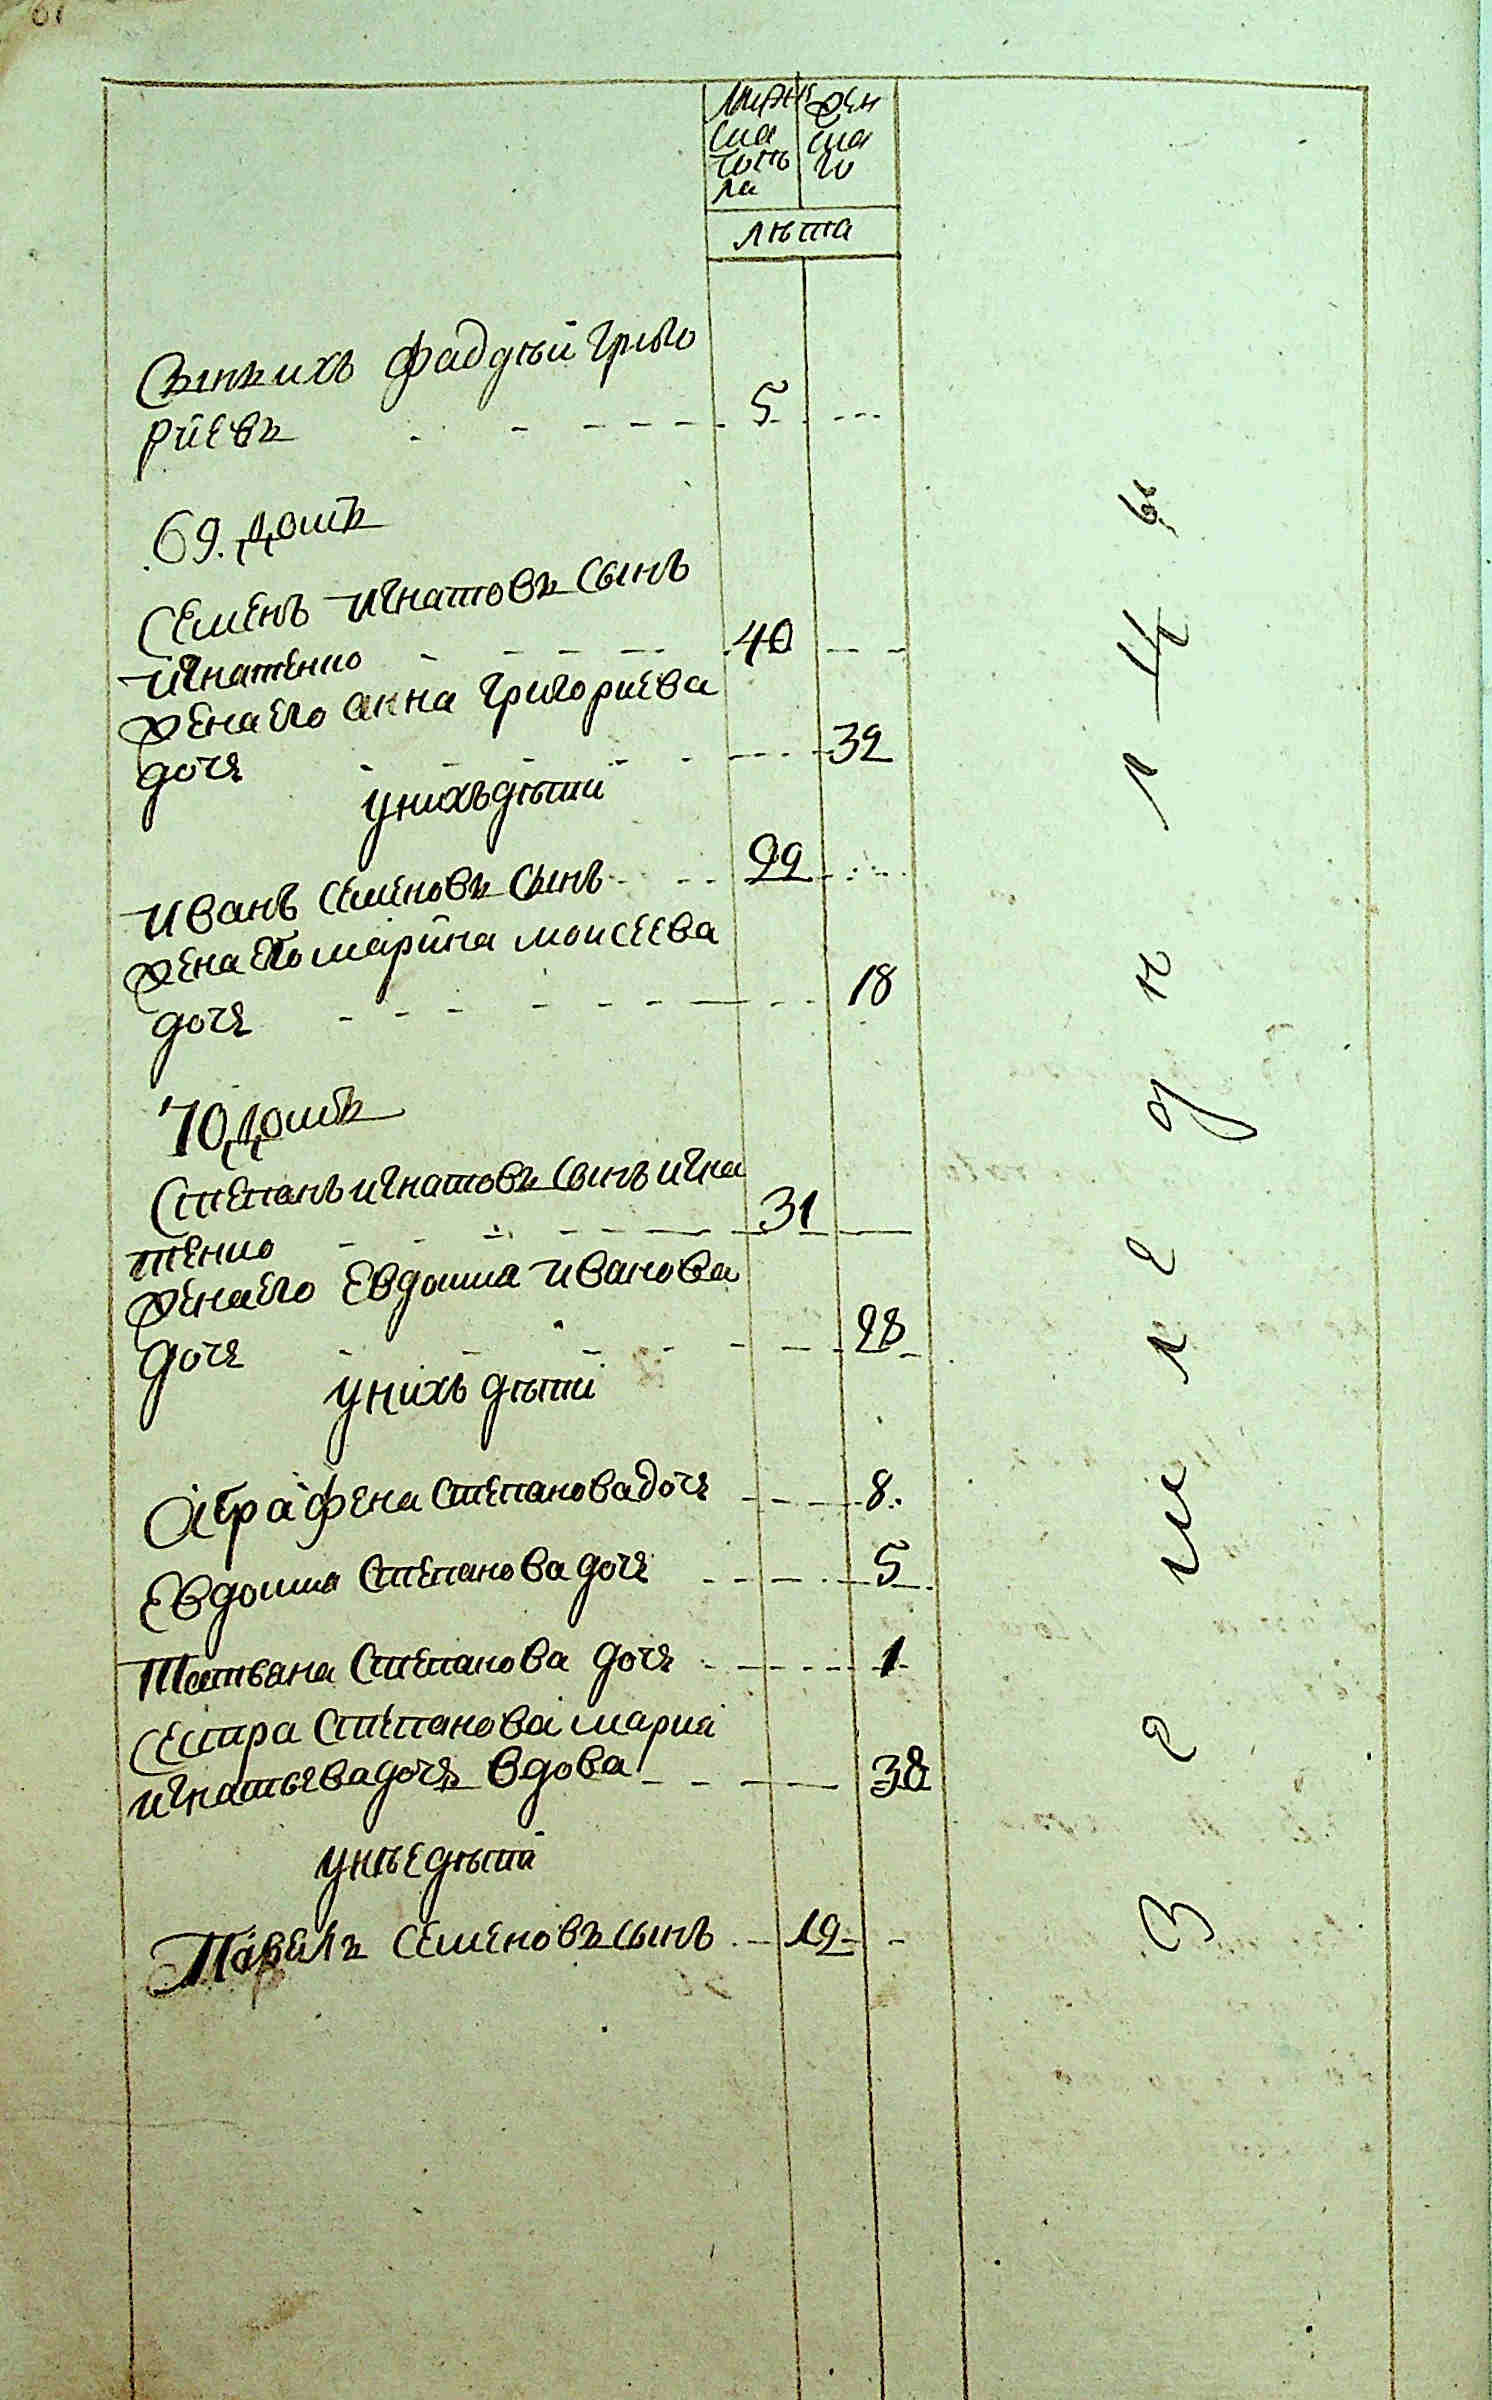 мужеска полу ла
женскаго
лѣта
Сынъ ихъ Фаддѣй Григо
рїевъ 5
69. Домъ
Семенъ Игнатовъ Сынъ
Игнатенко 40
жена его анна Григориева
дочь 32
у нихъ дѣти
Иванъ Семеновъ Сынъ 22
жена его марина моисеева
дочь 18
70 Домъ
Степанъ игнатовъ Сынъ игна
тенко 31
жена его Евдокиа Иванова
дочь 28
у нихъ дѣти
Аграфена Степанова дочь 8.
Евдокиа Степанова дочь 5
Татьяна Степанова дочь 1
Сестра Степанова мария
игнатьева дочь вдова 38
у нѣе дѣти
Павелъ Семеновъ сынъ 19
Земледѣлцы